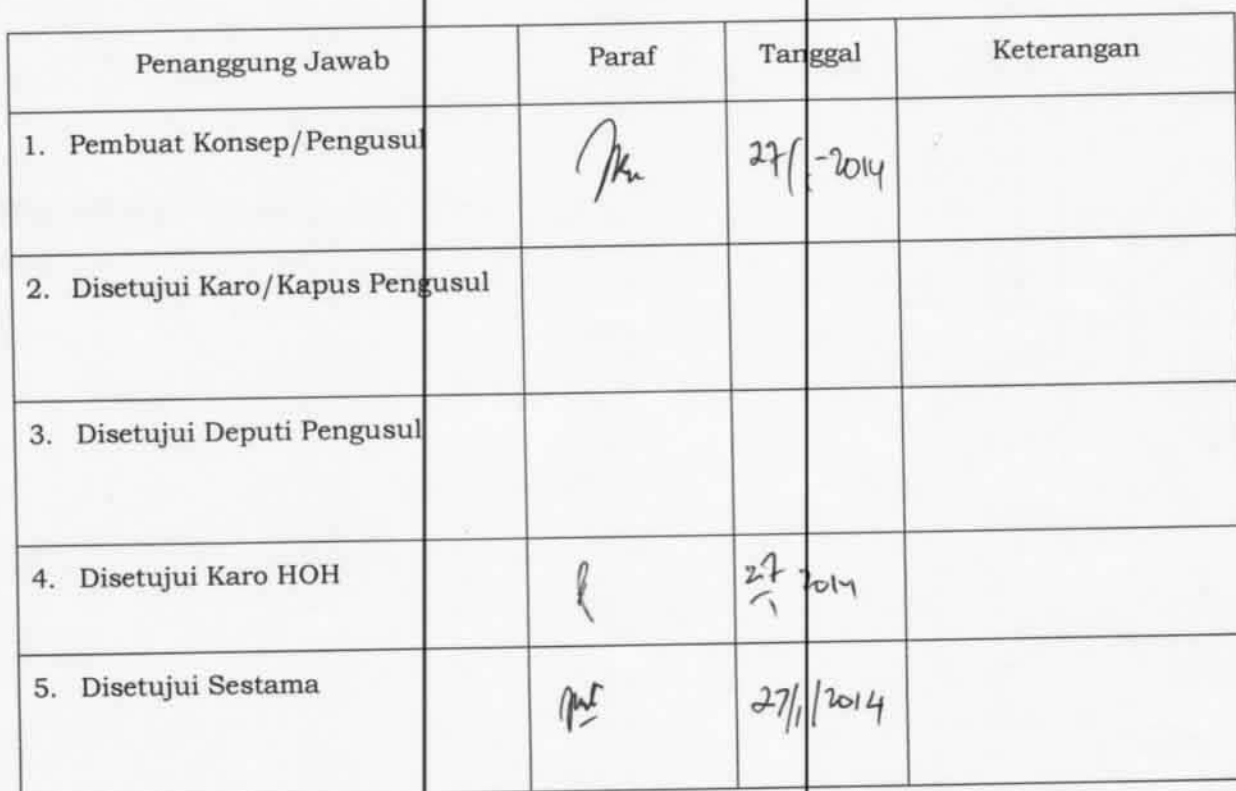 Penanggung Jawab Paraf Tanggal Keterangan
1. Pembuat Konsep/Pengusul 27/1-2014
2. Disetujui Karo/Kapus Pengusul
3. Disetujui Deputi Pengusul
4. Disetujui Karo HOH 27/1 2014
5. Disetujui Sestama 27/1/2014